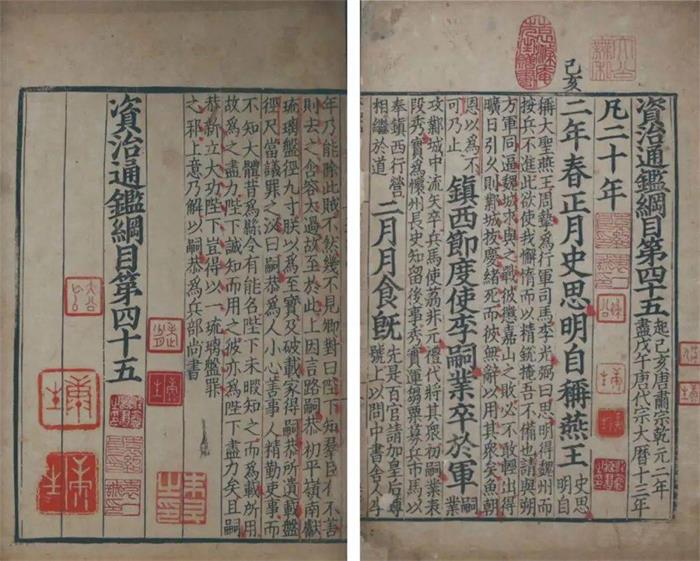 己亥
資治通鑑綱目第四十五
起己亥唐肅宗乾元二年
盡戊午唐代宗大曆十三年
凡二十年
二年春正月史思明自稱燕王
史思
明自
稱大聖燕王周摯為行軍司馬李光弼曰思明得魏州而
按兵不進此欲使我懈惰而以精銳掩吾不備也請與朔
方軍同逼魏城求與之戰彼懲嘉山之敗必不敢輕出得
曠日引久則鄴城拔慶緒死而彼無辭以用其衆矣魚朝
恩以為不
可乃止
鎮西節度使李嗣業卒於軍
嗣
業
攻鄴城中流矢卒兵馬使荔非元禮代將其衆初嗣業表
段秀實為懷州長史知留後事秀實運芻粟募兵市馬以
奉鎮西行營
相繼於道
二月月食旣
先是百官請加皇后尊
號上以問中書舍人
年乃能除此賊不然幾不見卿對曰陛下知羣臣不善
則去之含容太過故至於此上因言路嗣恭初平嶺南獻
琉璃盤徑九寸朕以為至寶及破載家得嗣恭所遺載盤
徑尺當議罪之泌曰嗣恭為人小心善事人精勤吏事而
不知大體昔為縣令有能名陛下未暇知之而為載所用
故為之盡力陛下誠知而用之彼亦為陛下盡力矣且嗣
恭新立大功陛下豈得以一琉璃盤罪
之邪上意乃解以嗣恭為兵部尚書
資治通鑑綱目第四十五